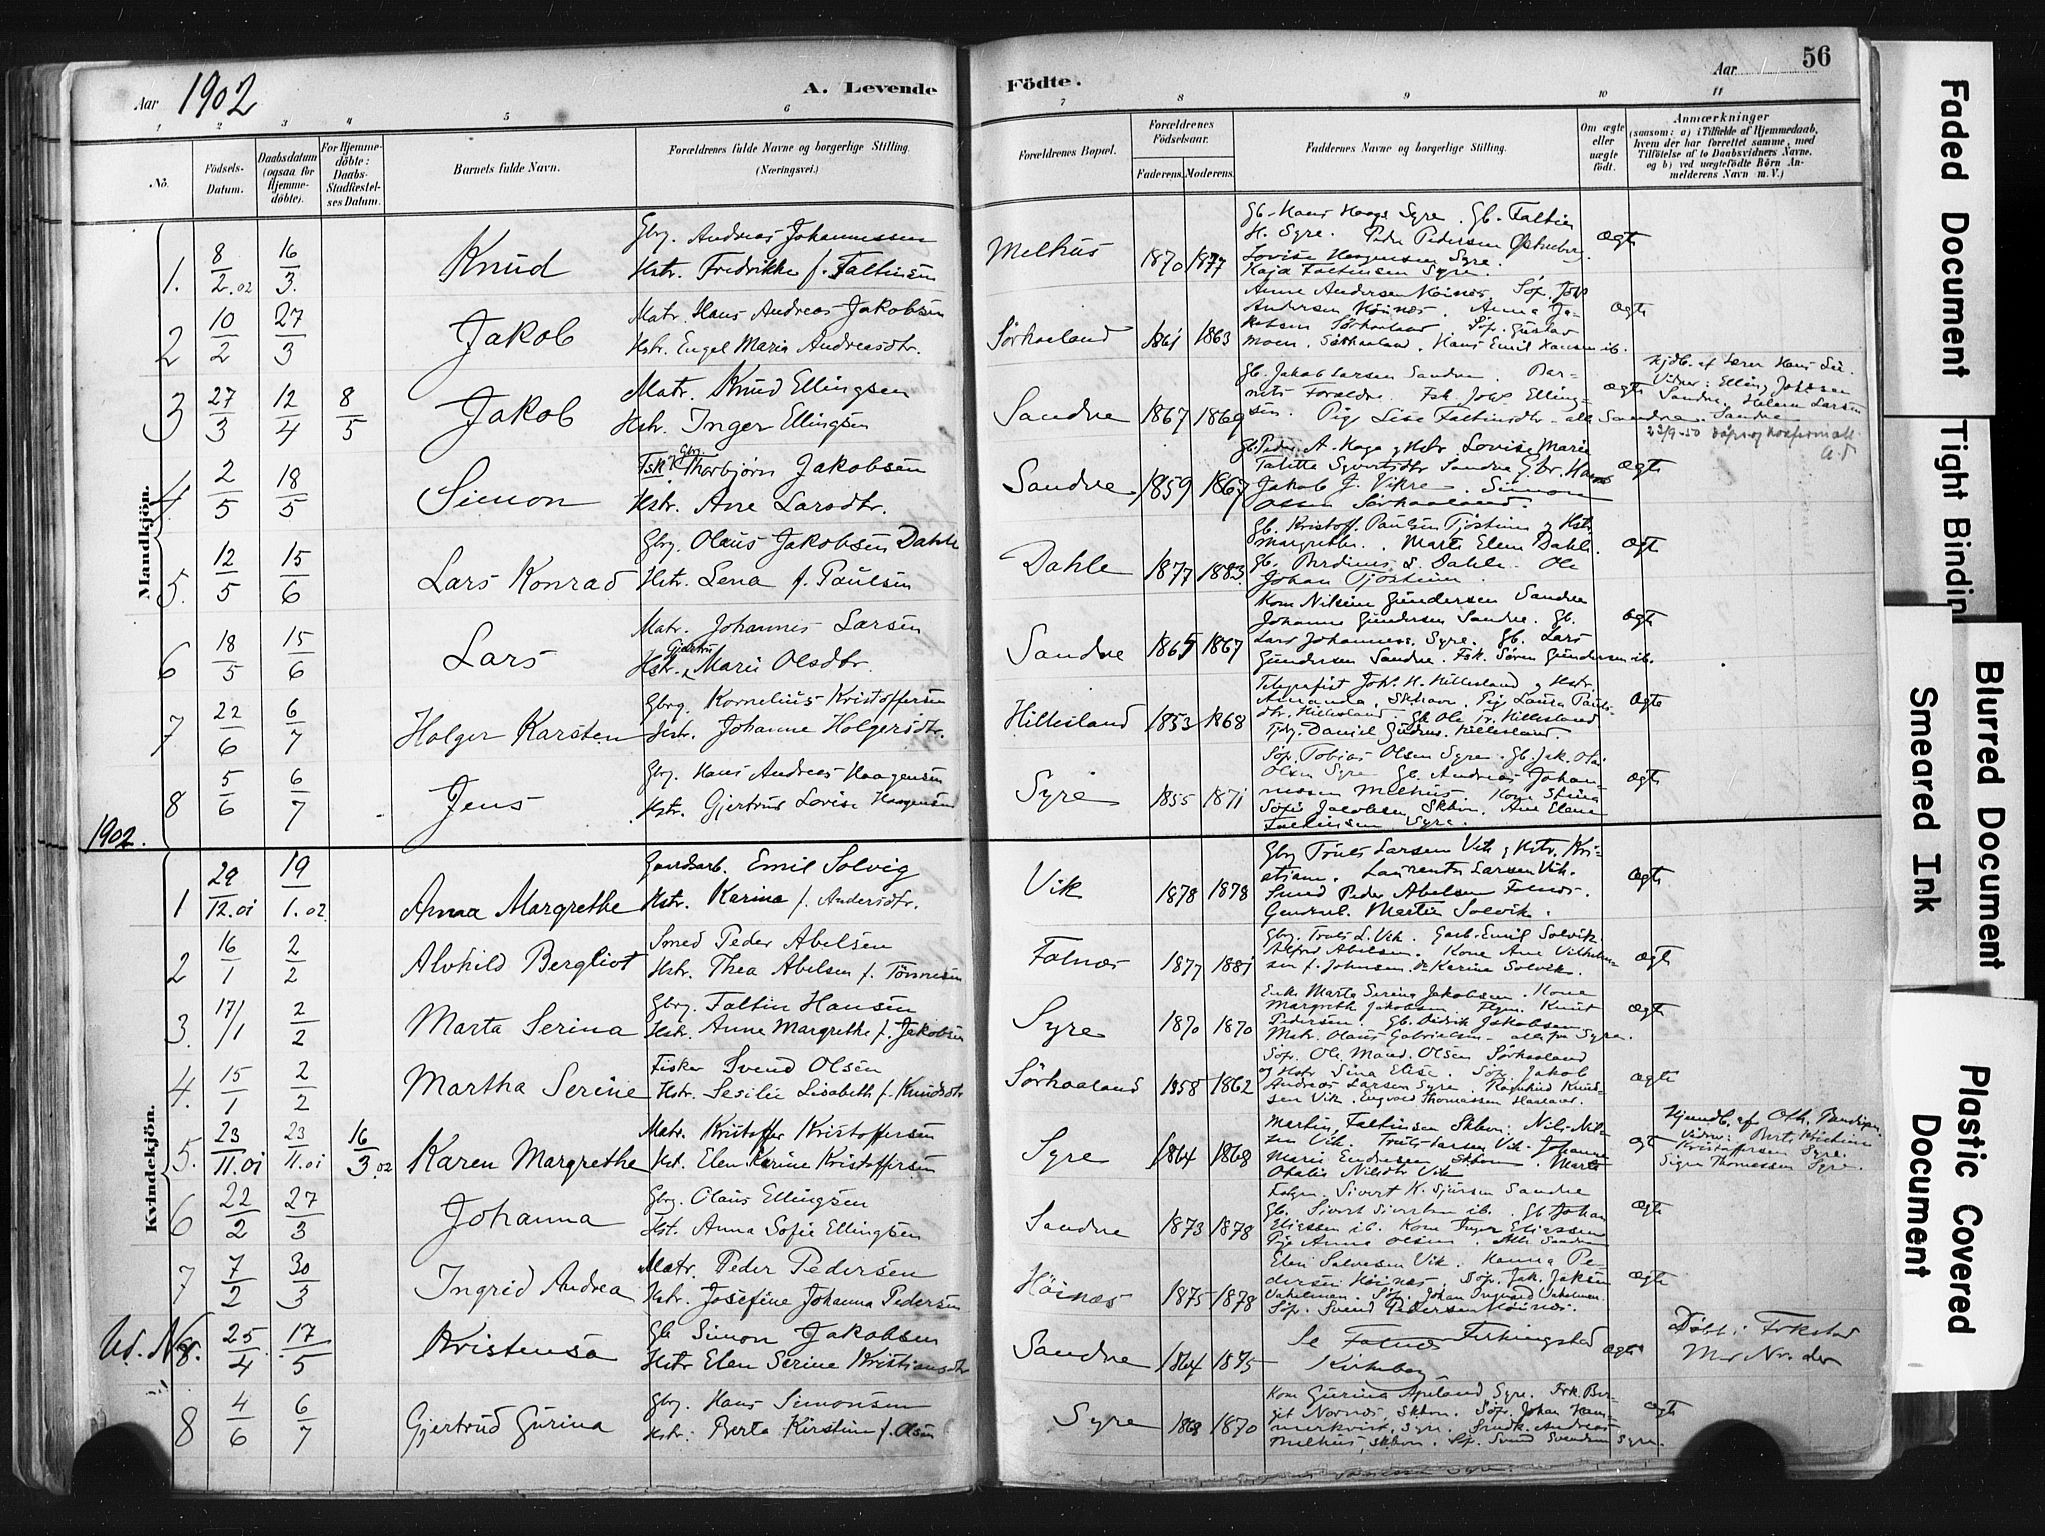 56
Aar 1902
A. Levende
Födte.
Aar
1 2 3 4 5 6 7 8 9 10 11
No.
Födsels-
Datum.
Daabsdatum
(ogsaa for
Hjemme-
döbte).
For Hjemme-
döbte:
Daabs-
Stadfæstel-
ses Datum.
Barnets fulde Navn.
Forældrenes fulde Navne og borgerlige Stilling
(Næringsvei.)
Forældrenes Bopæl.
Forældrenes
Födselsaar.
Faderens. Moderens.
Faddernes Navne og borgerlige Stilling.
Om ægte
eller
uægte
födt.
Anmærkninger
(saasom: a) i Tilfælde af Hjemmedaab,
hvem der har forrettet samme, med
Tilföielse af to Daabsvidners Navne,
og b) ved uægtefödte Börn An-
melderens Navn m. V.)
Mandkjön.
1. 8/2.02 16/3. Knud
Gbrg. Andreas Johannessen
Hstr. Fredrikke f. Faltinsen
Melhus 1870 1877
Gb. Hans Haags Syre. Gb. Faltin
H. Syre. Peder Pedersen
Lovise Haagensen Syre.
Kaja Faltinsen Syre.
Ægte
2 10/2 27/3 Jakob
Matr. Hans Andreas Jakobsen
Hstr. Engel Maria Andreasdtr.
Sørhaaland 1861 1863
Anne Andersen Høines. Søf. Johs
Andersen Høines. Anna Ja-
kobsen Sørhaaland. Søf. Gustav
moen. Sørhaaland. Hans Emil Hansen ib.
Ægte
3 27/3 12/4 8/5 Jakob
Matr. Knud Ellingsen
Hstr. Inger Ellingsen
Sandve 1867 1869
Gb. Jakob Larsen Sandve. Bar-
nets Forældre. Fsk. Johs Elling-
sen. Pige Lise Faltinsdtr. alle Sandve.
Ægte
Hjdb. af Lærer Hans
Vidner: Elling Johssen
Sandve, Helene Larsen
Sandve
23/9-50 dåps og konfirm att
4. 2/5 18/5 Simon
Fsk. & Gbrg. Thorbjørn Jakobsen
Hstr. Ane Larsdtr.
Sandve 1859 1867
Gb. Peder A. Hage & Hstr. Lovise, Marie
Talitte Syvertsdtr Sandve Gbr. Hans
Jakob J. Vikre. Simon
Olsen Sørhaaland.
Ægte
5. 12/5 15/6 Lars Konrad
Gbrg. Olaus Jakobsen Dahle
Hstr. Lena f. Paulsen
Dahle 1877 1883
Gb. Kristoff. Paulsen Tjøsheim & Hstr.
Margrethe. Marte Elene Dahle.
Gb. Berdinus L. Dahle. Ole
Johan Tjøsheim.
Ægte
6 18/5 15/6 Lars
Matr. Johannes Larsen
Hstr. Gjertrud Marie Olsdtr.
Sandve 1865 1867
Kone Nilsine Gundersen Sandve
Johanne Gundersen Sandve. Gb.
Lars Johanness. Syre. Gb. Lars
Gundersen Sandve. Fsk. Søren Gundersen ib.
Ægte
7 22/6 6/7 Holger Karsten
Gbrg. Kornelius Kristoffersen
Hstr. Johanne Holgersdtr.
Hillesland 1853 1868
Telegrafist Johs. H. Hillesland & Hstr
Amanda, Skhavn. Pig Laura Pauls-
dtr. Hillesland. Gb Ole Hillesland
Daniel Gudms. Hillesland.
Ægte
8 5/6 6/7 Jens
Gbrg. Hans Andreas Haagensen
Hstr. Gjertrud Lovise Haagensen
Syre 1855 1871
Søf. Tobias Olsen Syre. Gb. Jak. Ole
Olsen Syre Gb. Andreas Johan-
nessen Melhus. Kone Stina
Sofie Jacobsen Skhvn. Ane Elene
Faltinsen Syre.
Ægte
1902.
Kvindekjön.
1 29/12.01 19/1.02 Anna Margrethe
Gaardarb. Emil Solvig
Hstr. Karina f. Andersdtr.
Vik 1878 1878
Gbrg Truls Larsen Vik & Hstr. Kri-
stiane. Laurents Larsen Vik.
Smed Peder Abelsen Falnes.
Martin Solvik.
Ægte
2 16/1 2/2 Alvhild Bergliot
Smed Peder Abelsen
Hstr. Thea Abelsen f. Tønnesen
Falnes 1877 1881
Gbrg. Truls L. Vik. Garb. Emil Solvik
Alfred Abelsen. Kone Ane Vilhelm-
sen f. Johnsen. & Karine Solvik.
Ægte
3. 17/1 2/2 Marta Serina
Gbrg. Faltin Hansen
Hstr. Anne Margrethe f. Jakobsen
Syre 1870 1870
Enke Marta Serina Jakobsen. Kone
Margreth Jakobsen Knut
Pedersen. Gb. Didrik Jakobsen
Matr. Olaus Gabrielsen - alle fra Syre.
Ægte
4. 15/1 2/2 Martha Serine
Fisker Svend Olsen
Hstr. Sesilie Lisabeth f. Knudsdtr
Sørhaaland 1858 1862
Søf. Ole Maud. Olsen Sørhaaland
og Hstr Sina Elise. Søf. Jakob
Andreas Larsen Syre. Ragnhild Knud-
sen Vik. Engvald Thomassen
Ægte
5. 23/11.01 23/11.01 16/3.02 Karen Margrethe
Matr. Kristoffer Kristoffersen
Hst. Elen Karine Kristoffersen
Syre 1864 1868
Martin Faltinsen Skhvn. Nils Nil-
sen Vik. Truls Larsen Vik. Johanne
Marie Endresen Skhvn. Marte
Otalie Nilsdtr Vik
Ægt
Hjemdb. af Oth.
Vidner: Berte Kristine
Kristoffersen Syre.
Signe Thomassen Syre.
6 22/2 27/3 Johanna
Gbrg. Olaus Ellingsen
Hst. Anna Sofie Ellingsen
Sandve 1873 1878
Sivert K. Sjursen Sandve
Gb. Sivert Sivertsen ib. Gb. Johan
Eliassen ib. Kone Inger Eliassen
Pige Anna Olsen. Alle Sandve
Ægte
7 7/2 30/3 Ingrid Andrea
Matr. Peder Pedersen
Hstr. Josefine Johanna Pedersen
Høines 1875 1878
Elen Salvesen Vik. Hanna Pe-
dersen Høines. Søf. Jak. Jaksen
Vakelman. Søf. Johan Ingvald Vakelman.
Søf. Svend Pedersen Høines.
Ægte
Ud. Nr. 8. 25/4 17/5 Kristensa
Gb Simon Jakobsen
Hstr Elen Serine Kristiansdtr
Sandve 1864 1875
Se Falnes Ferkingstad
Kirkebog
Ægte
Døbt i Frkstad
Mer Nr. der
8 4/6 6/7 Gjertrud Gurina
Gbrg. Hans Simonsen
Hstr. Berta Kirstine f. Olsen
Syre 1868 1870
Kone Gurina Apeland Syre. Frk. Bir-
git Nornes, Skhvn. Søf. Johan Ham-
merkvist, Syre. Smdk. Andreas
Melhus, Skhvn. Sf. Svend Svendsen Syre.
Ægte
Faded Document
Tight Bindin
Blurred Document
Smeared Ink
Plastic Covered
Document